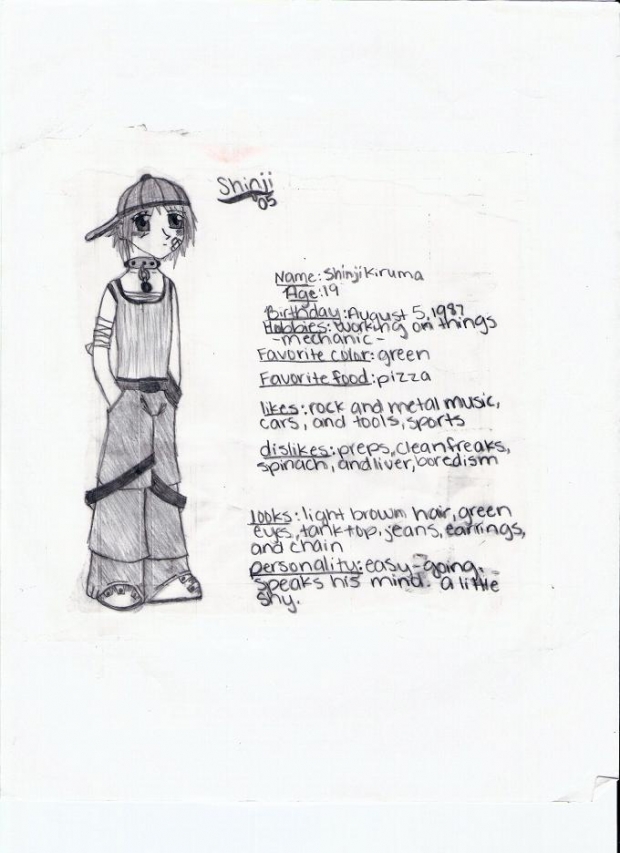 Shinji
'05
Name: Shinji Kiruma
Age: 19
Birthday: August 5, 1987
Hobbies: working on things
- mechanic -
Favorite color: green
Favorite food: pizza
likes: rock and metal music,
cars, and tools, sports
dislikes: preps, cleanfreaks,
spinach, and liver, boredism
looks: light brown hair, green
eyes, tanktop, jeans, earrings,
and chain
personality: easy-going.
speaks his mind. a little
shy.